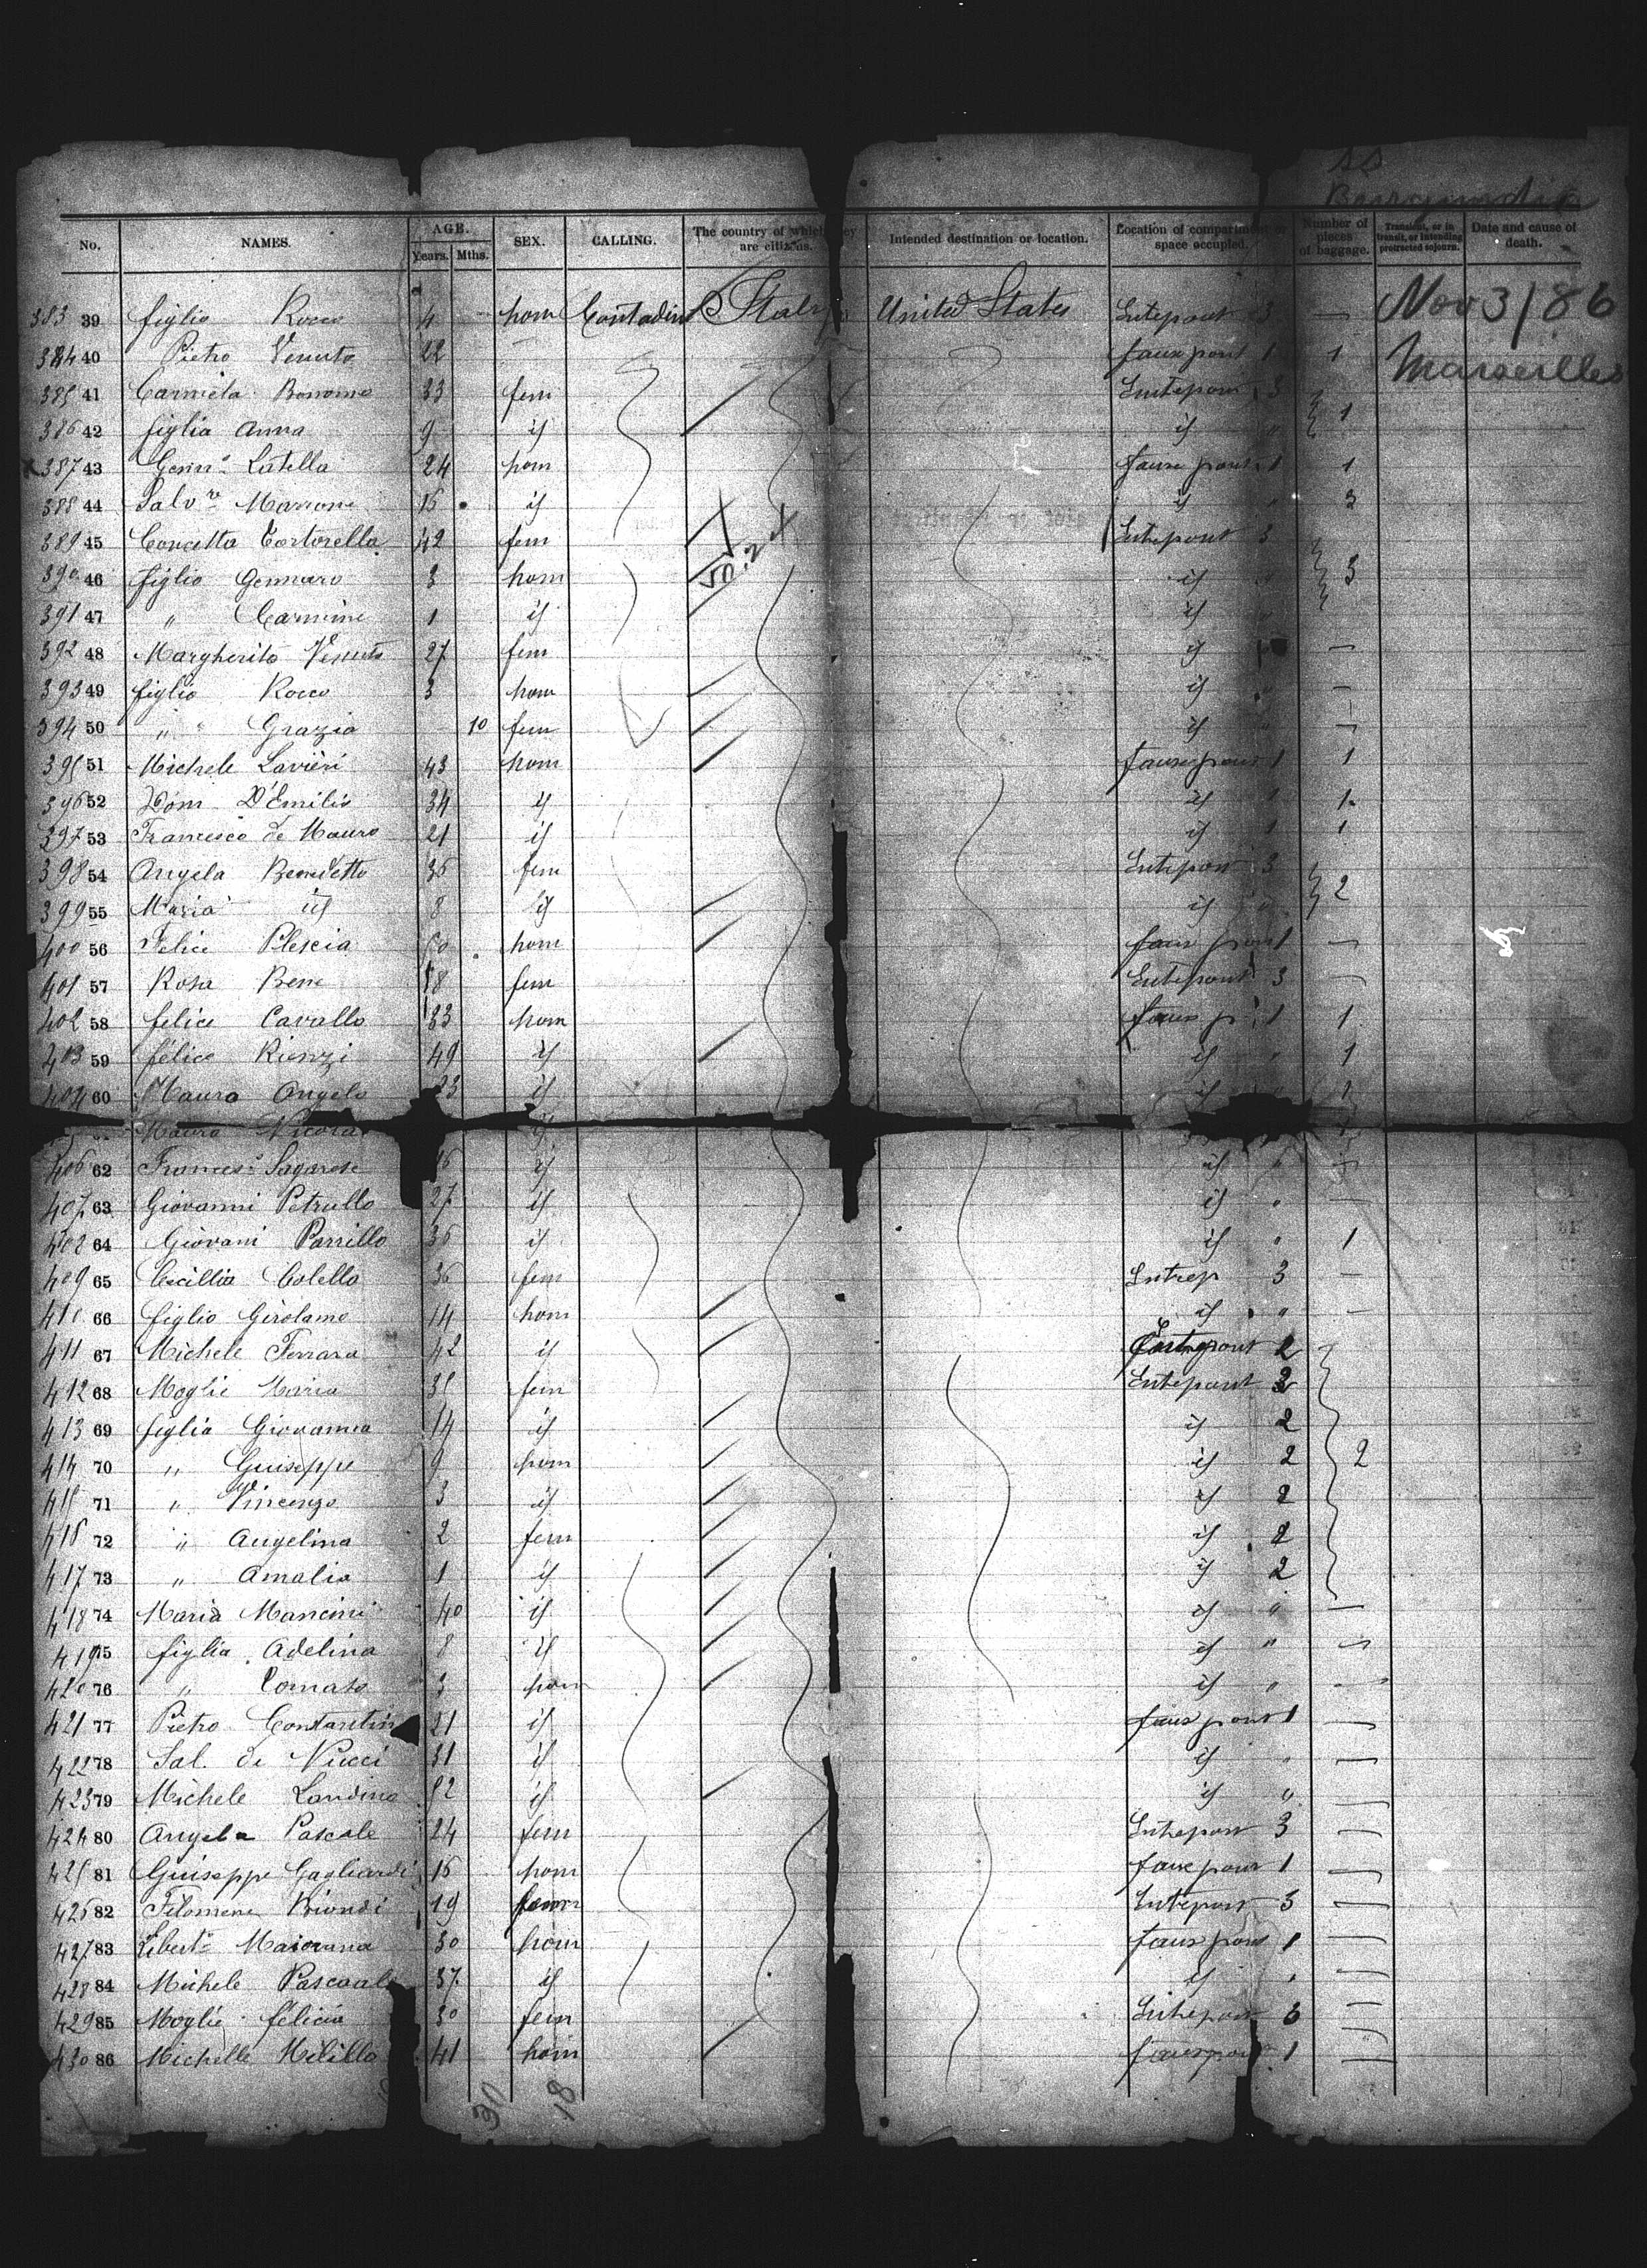 SS
No. NAMES. AGE. Years. Mths. SEX. CALLING. The country of which they are citizens. Intended destination or location. Location of compartment or space occupied. Number of pieces of baggage. Transient, or in transit, or intending protracted sojourn. Date and cause of death.
383 39 figlio Rocco 4 hom Contadini Italy United States Entepont 3 — Nov 3/86
384 40 Pietro Venuto 22 faux pont 1 1 Marseilles
385 41 Carmela Bonomo 33 fem Entepont 3
386 42 figlia Anna 9 id id " 1
387 43 Genn° Latella 24 hom faux pont 1 1
388 44 Salvre Marrone 15 id id " 2
389 45 Concetta Tortorella 42 fem Entepont 3
390 46 figlio Gennaro 3 hom id " 3
391 47 " Carmine 1 id id "
392 48 Margherita Venuto 27 fem id —
393 49 figlio Rocco 3 hom id " —
394 50 " Grazia 10 fem id " —
395 51 Michele Lavieri 43 hom faux pont 1 1
396 52 Dom D'Emilio 34 id id 1 1
397 53 Francesco de Mauro 21 id id 1 1
398 54 Angela Benedetto 35 fem Entepont 3
399 55 Maria id 8 id id " 2
400 56 Felice Plescia hom faux pont 1 —
401 57 Rosa Bene 18 fem Entepont 3 —
402 58 felice Cavallo 33 hom faux p 1 1
403 59 felice Rienzi 49 id id " 1
404 60 Mauro Angelo 23 id id " 1
Mauro Nicola id
406 62 Frances° Sagarese 16 id id "
407 63 Giovanni Petrullo 27 id id " —
408 64 Giovani Parrillo 36 id id " 1
409 65 Cecillia Colello 36 fem Entrep 3 —
410 66 figlio Girolamo 14 hom id " —
411 67 Michele Ferrara 42 id Entrepont 2
412 68 Moglie Maria 35 fem Entepont 2
413 69 figlia Giovanna 14 id id 2
414 70 " Guiseppe 9 hom id 2 2
415 71 " Vincenzo 3 id id 2
416 72 " Angelina 2 fem id 2
417 73 " Amalia 1 id id 2
418 74 Maria Mancini 40 id id " —
419 75 figlia Adelina 8 id id " —
420 76 " Tomaso 3 hom id " —
421 77 Pietro Contantin 21 id faux pont 1 —
422 78 Sal. di Nucci 31 id id " —
423 79 Michele Landino 52 id id " —
424 80 Angela Pascale 24 fem Entepont 3 —
425 81 Guiseppe Gagliardi 15 hom faux pont 1 —
426 82 Filomena Biondi 19 fem Entepont 3 —
427 83 Libert° Maiorana 30 hom faux pont 1 —
428 84 Michele Pascoale 37 id id " —
429 85 Moglie felicia 30 fem Entepont 3 —
430 86 Michelle Milillo 41 hom faux pont 1 —
30 18